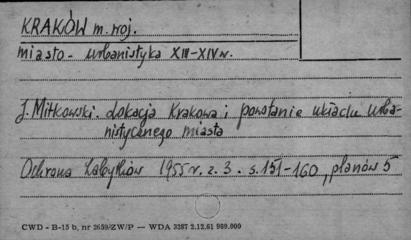 KRAKÓW m. woj.
miasto - urbanistyka XIII-XIV w.
J. Mitkowski. Lokacja Krakowa i powstanie układu urba-
nistycznego miasta
Ochrona Zabytków 1955 r. z. 3. s. 151-160, planów 5
CWD - B-15 b, nr 2659/ZW/P — WDA 3287 2.12.61 989.000